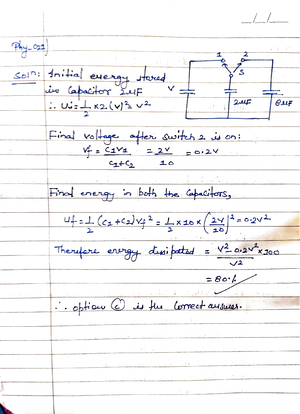 Phy_021
Soln: Initial energy stored
in Capacitor 2μF
∴ Ui = 1/2 × 2(V)² = V²
1 2
S
V 2μF 8μF
Final voltage after switch 2 is on:
Vf = C1V1/C1+C2 = 2V/10 = 0.2V
Final energy in both the Capacitors,
Uf = 1/2 (C1+C2) Vf² = 1/2 × 10 × (2V/10)² = 0.2V²
Therefore energy dissipated = V² - 0.2V²/V² × 100
= 80%
∴ option (c) is the correct answer.